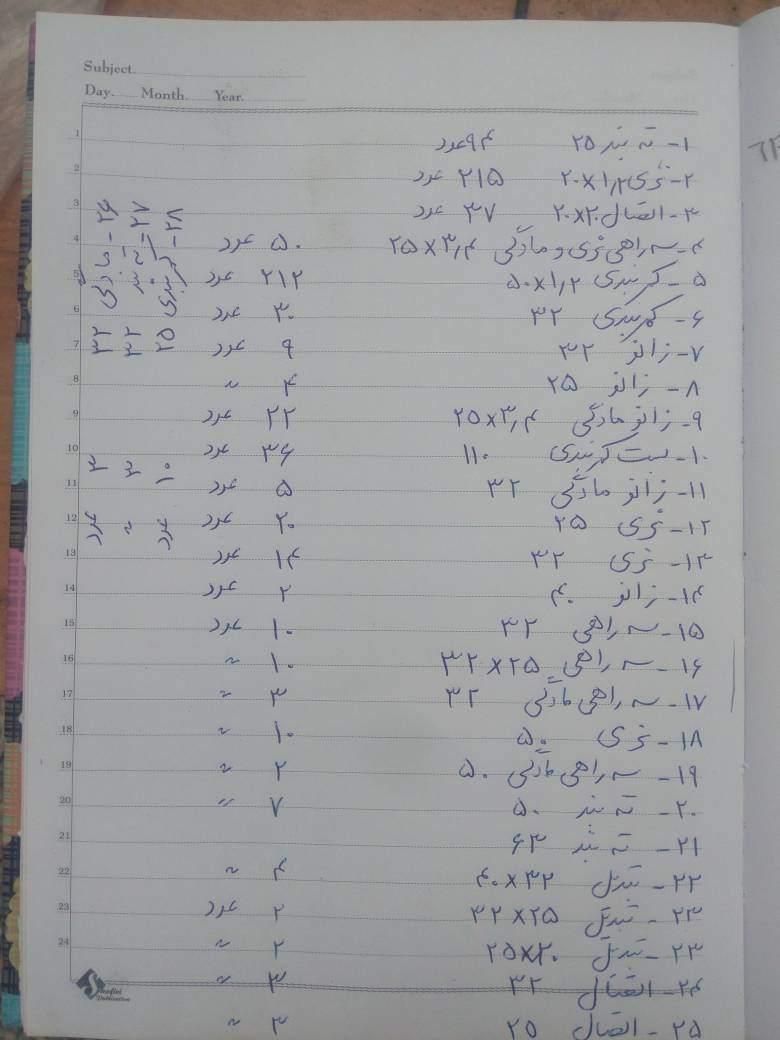 Subject.
Day. Month. Year.
۱- ته بند ۲۵ ۹۴ عدد
۲- نری ۱٫۲×۲۰ ۲۱۵ عدد
۳- اتصال ۲۰×۲۰ ۳۷ عدد
۴- سه راهی نری و مادگی ۳٫۴×۲۵ ۵۰ عدد
۵- کمربندی ۱٫۲×۵۰ ۲۱۲ عدد
۶- کمربندی ۳۲ ۳۰ عدد
۷- زانو ۳۲ ۹ عدد
۸- زانو ۲۵ ۴ "
۹- زانو مادگی ۳٫۴×۲۵ ۲۲ عدد
۱۰- بست کمربندی ۱۱۰ ۳۶ عدد
۱۱- زانو مادگی ۳۲ ۵ عدد
۱۲- نری ۲۵ ۲۰ عدد
۱۳- نری ۳۲ ۱۴ عدد
۱۴- زانو ۴۰ ۲ عدد
۱۵- سه راهی ۳۲ ۱۰ عدد
۱۶- سه راهی ۲۵×۳۲ ۱۰ "
۱۷- سه راهی مادگی ۳۲ ۳ "
۱۸- نری ۵۰ ۱۰ "
۱۹- سه راهی مادگی ۵۰ ۲ "
۲۰- ته بند ۵۰ ۷ "
۲۱- ته بند ۶۳
۲۲- تبدیل ۳۲×۴۰ ۴ "
۲۳- تبدیل ۲۵×۳۲ ۲ عدد
۲۳- تبدیل ۲۰×۲۵ ۲ "
۲۴- اتصال ۳۲ ۳ "
۲۵- اتصال ۲۵ ۳ "
۲۶- مادگی ۳۲ ۳ عدد
۲۷- ته بند ۳۲ ۳ "
۲۸- کمربندی ۲۵ ۱۰ عدد
1
2
3
4
5
6
7
8
9
10
11
12
13
14
15
16
17
18
19
20
21
22
23
24
Shafiei
Publication